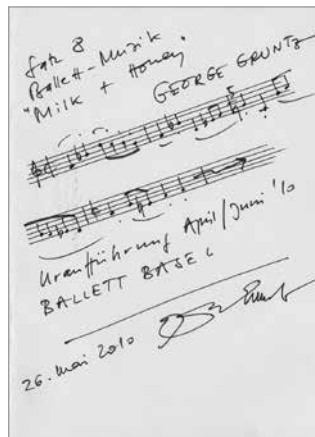 Satz 8
Ballett-Musik
"Milk + Honey"
GEORGE GRUNTZ
Uraufführung April/Juni '10
BALLETT BASEL
26. Mai 2010